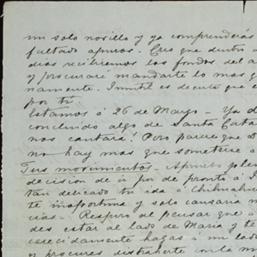 un solo novillo y ya comprenderás
fultado apuros. Creo que dentro
días recibiremos los fondos del a
y procuraré mandarte lo mas q
namente. Inutil es decirte que e
por ti.
Estamos á 26 de Mayo - Ya d
concluido algo de Santa Cata
nos cantará. Pero parece que D
no hay mas que someterse á
Tus movimientos - Apruebo plen
decision de ir por de pronto á I
tan delicado tu ida á Chihuahua
te inoportuna y solo causaria m
cias. - Respecto de pensar que á
des estar al lado de Maria y te
decididamente hagas á un lado
y procures distraerte con la m